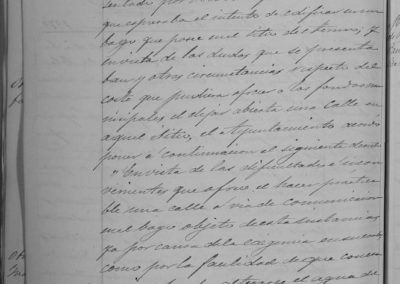 que expresaba el intento de edificar en un
bago que posee en el sitio del termino, y
en vista de las dudas que se presenta
ban y otras circunstancias respecto del
coste que pudiera ofrecer a los fondos mu
nicipales el dejar abierta una calle en
aquel sitio, el Ayuntamiento acordo
poner a continuacion el siguiente
"En vista de las dificultades e incon
venientes que ofrece el hacer practica
ble una calle o via de comunicacion
en el bago objeto de esta instancia,
ya por causa de la
como por la facilidad de que
el agua de